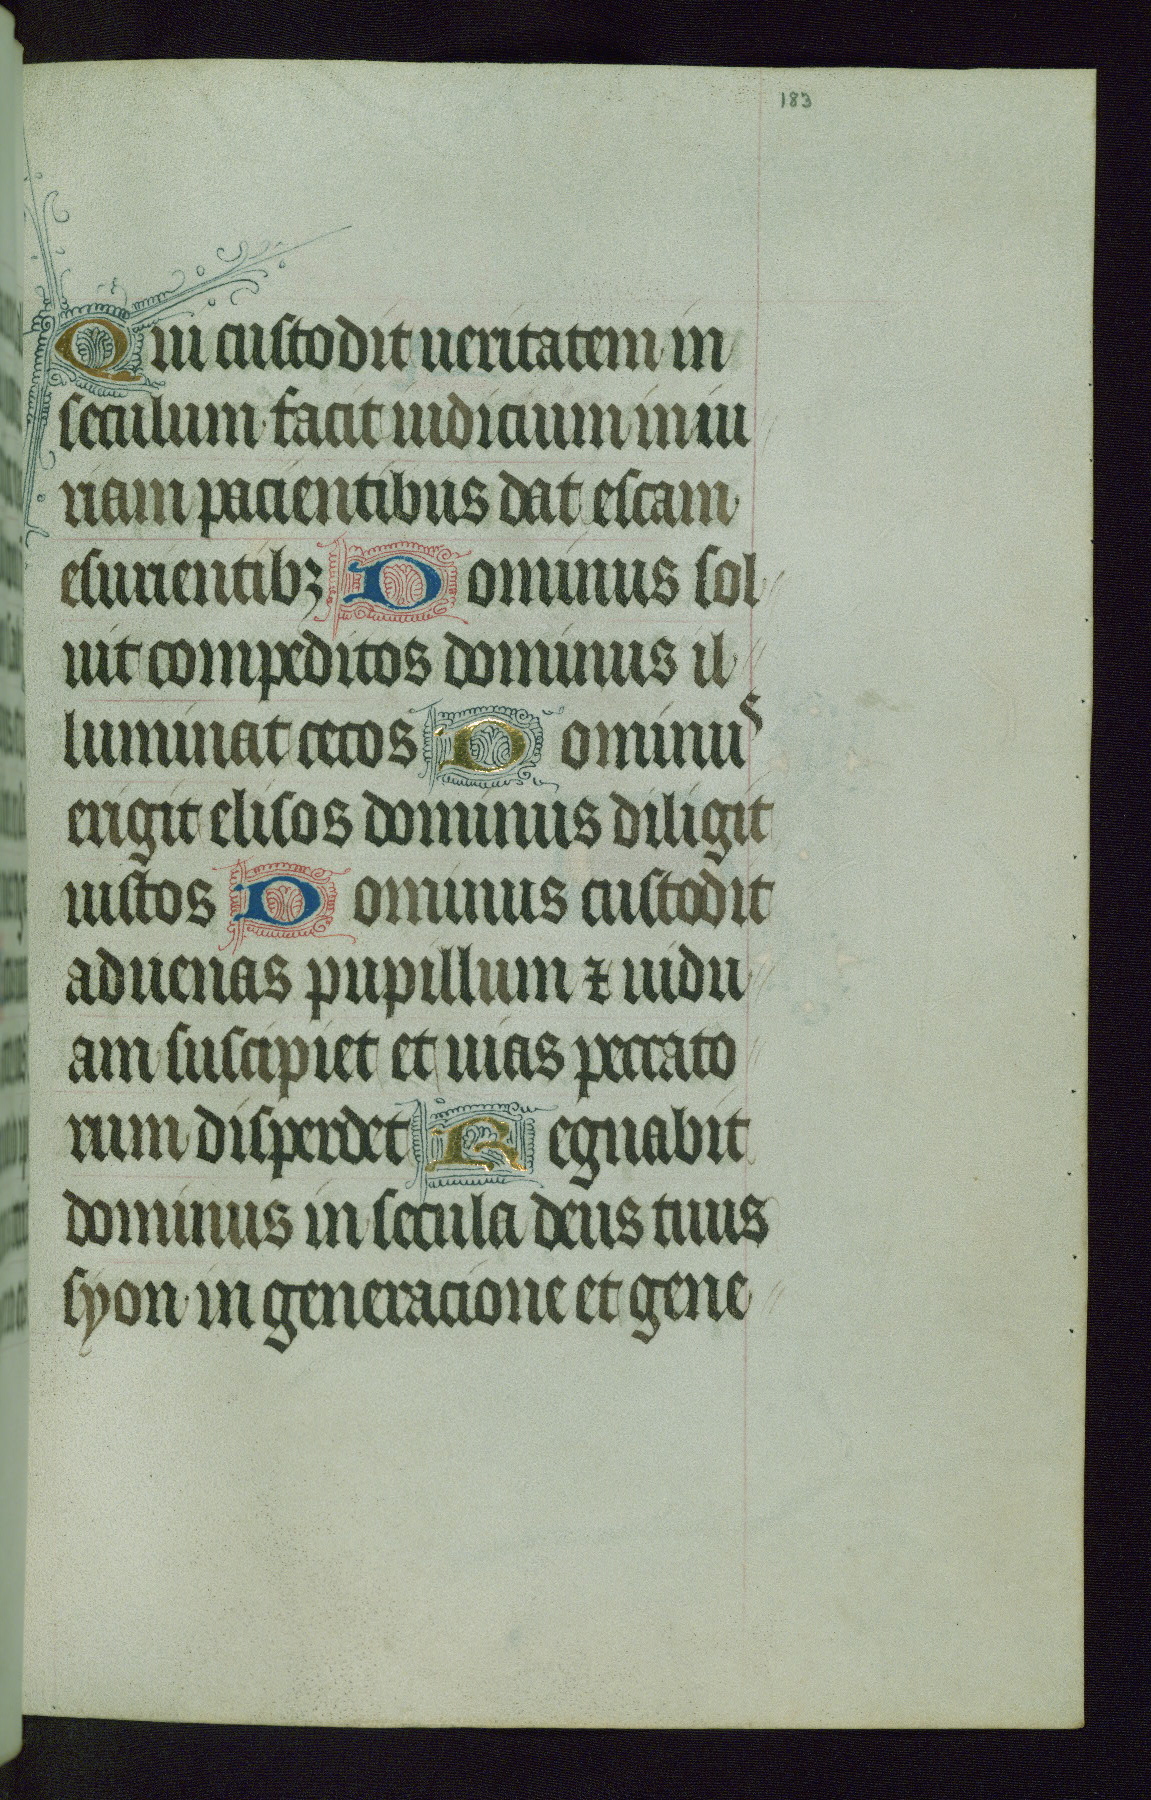 183
Qui custodit ueritatem in
seculum facit iudicium iniu
riam pacientibus dat escam
esurientibꝫ Dominus sol
uit compeditos dominus il
luminat cecos Dominus
erigit elisos dominus diligit
iustos Dominus custodit
aduenas pupillum ⁊ uidu
am suscipiet et uias peccato
rum disperdet Regnabit
dominus in secula deus tuus
syon in generacione et gene